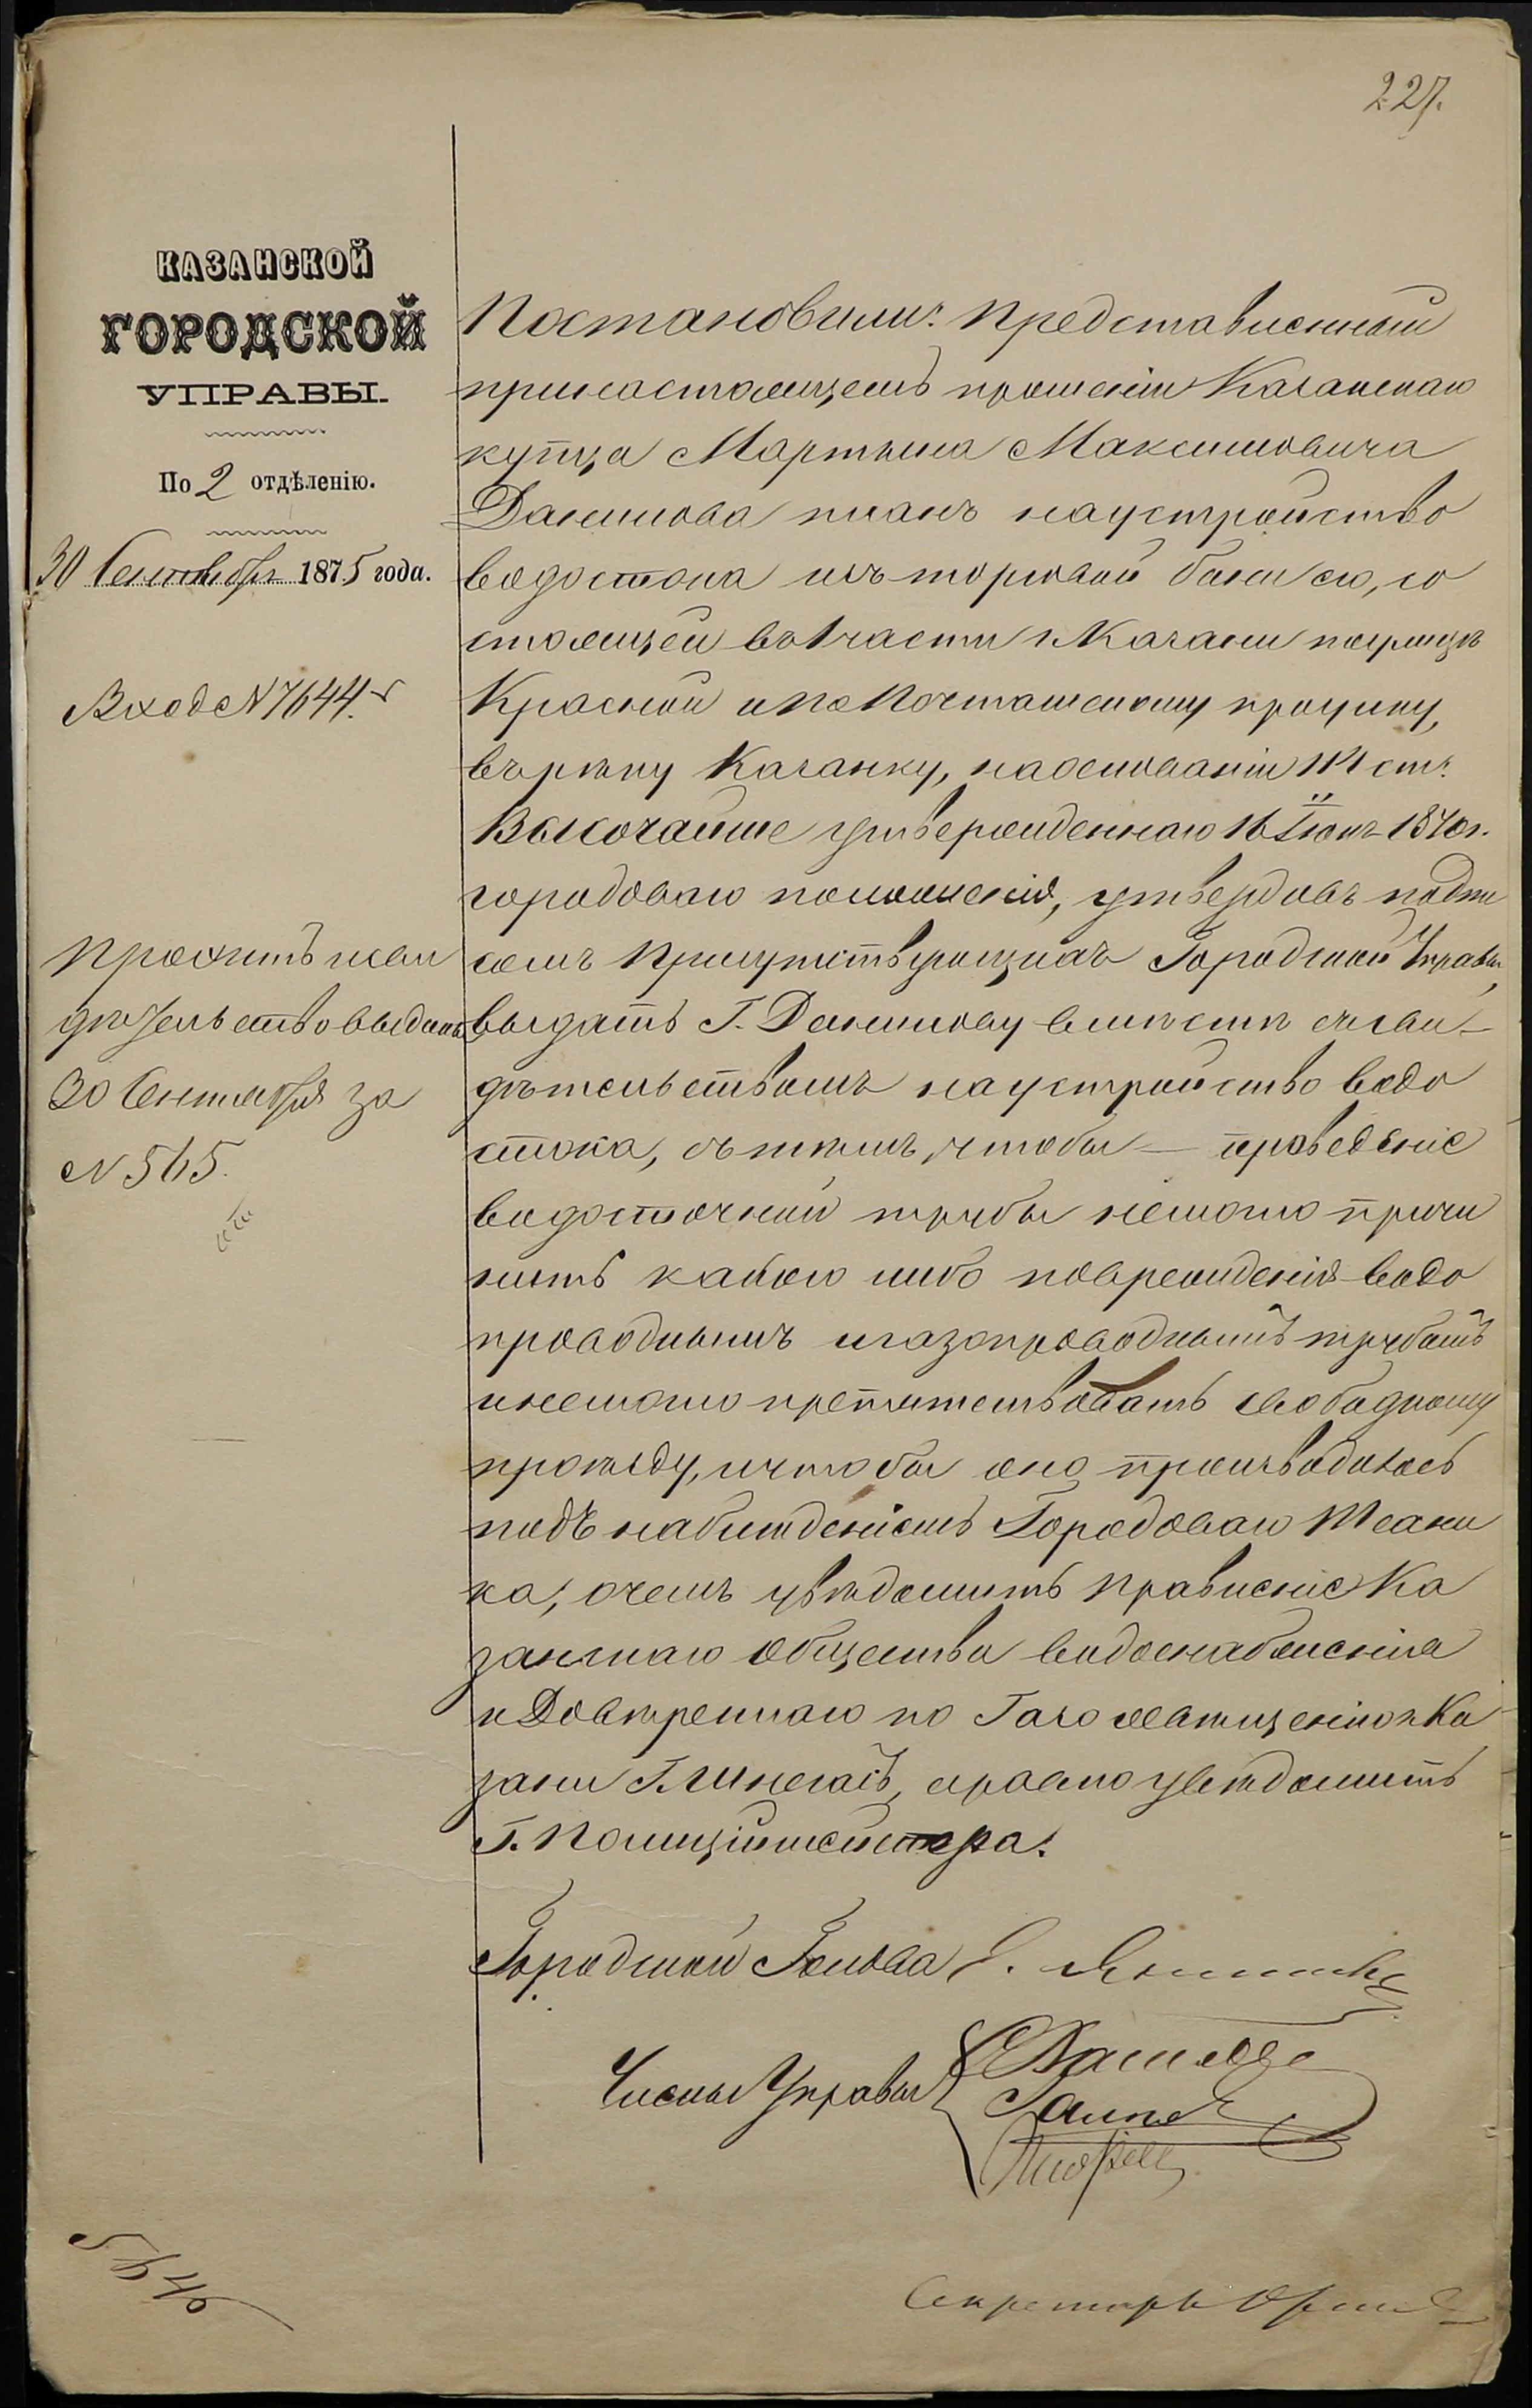 227.
КАЗАНСКОЙ
ГОРОДСКОЙ
УПРАВЫ.
По 2 отдѣленію.
30 Сентября 1875 года.
Вход № 7644.
Проэктъ и сви
дѣтельство выданы
30 Сентября за
№ 565.
Постановили: Представленный
при настоящемъ прошеніи Казанскаго
купца Мартына Максимовича
Данилова планъ на устройство
водостока изъ торговой бани его, со
стоящей въ 1 части г. Казани по улицѣ
Красной и по Почташскому проулку,
въ рѣку Казанку, на основаніи 114 ст.
Высочайше утвержденнаго 16 Іюня 1870 г.
городоваго положенія, утвердивъ подпи
сомъ присутствующихъ Городской Управы,
выдать Г. Данилову вмѣстѣ съ сви-
дѣтельствомъ на устройство водо
стока, съ тѣмъ, чтобы — проведеніе
водосточной трубы не могло причи
нить какого либо поврежденія водо
проводнымъ и газопроводнымъ трубамъ
и не могло препятствовать свободному
проѣзду, и чтобы оно производилось
подъ наблюденіемъ Городоваго Механи
ка, о чемъ увѣдомить Правленіе Ка
занскаго Общества водоснабженія
и Довѣреннаго по Газоосвѣщенію г. Ка
зани Г. , а равно увѣдомить
Г. Полиціймейстера.
Городской Голова Э. Янишевс
Члены Управы
Секретарь
5646